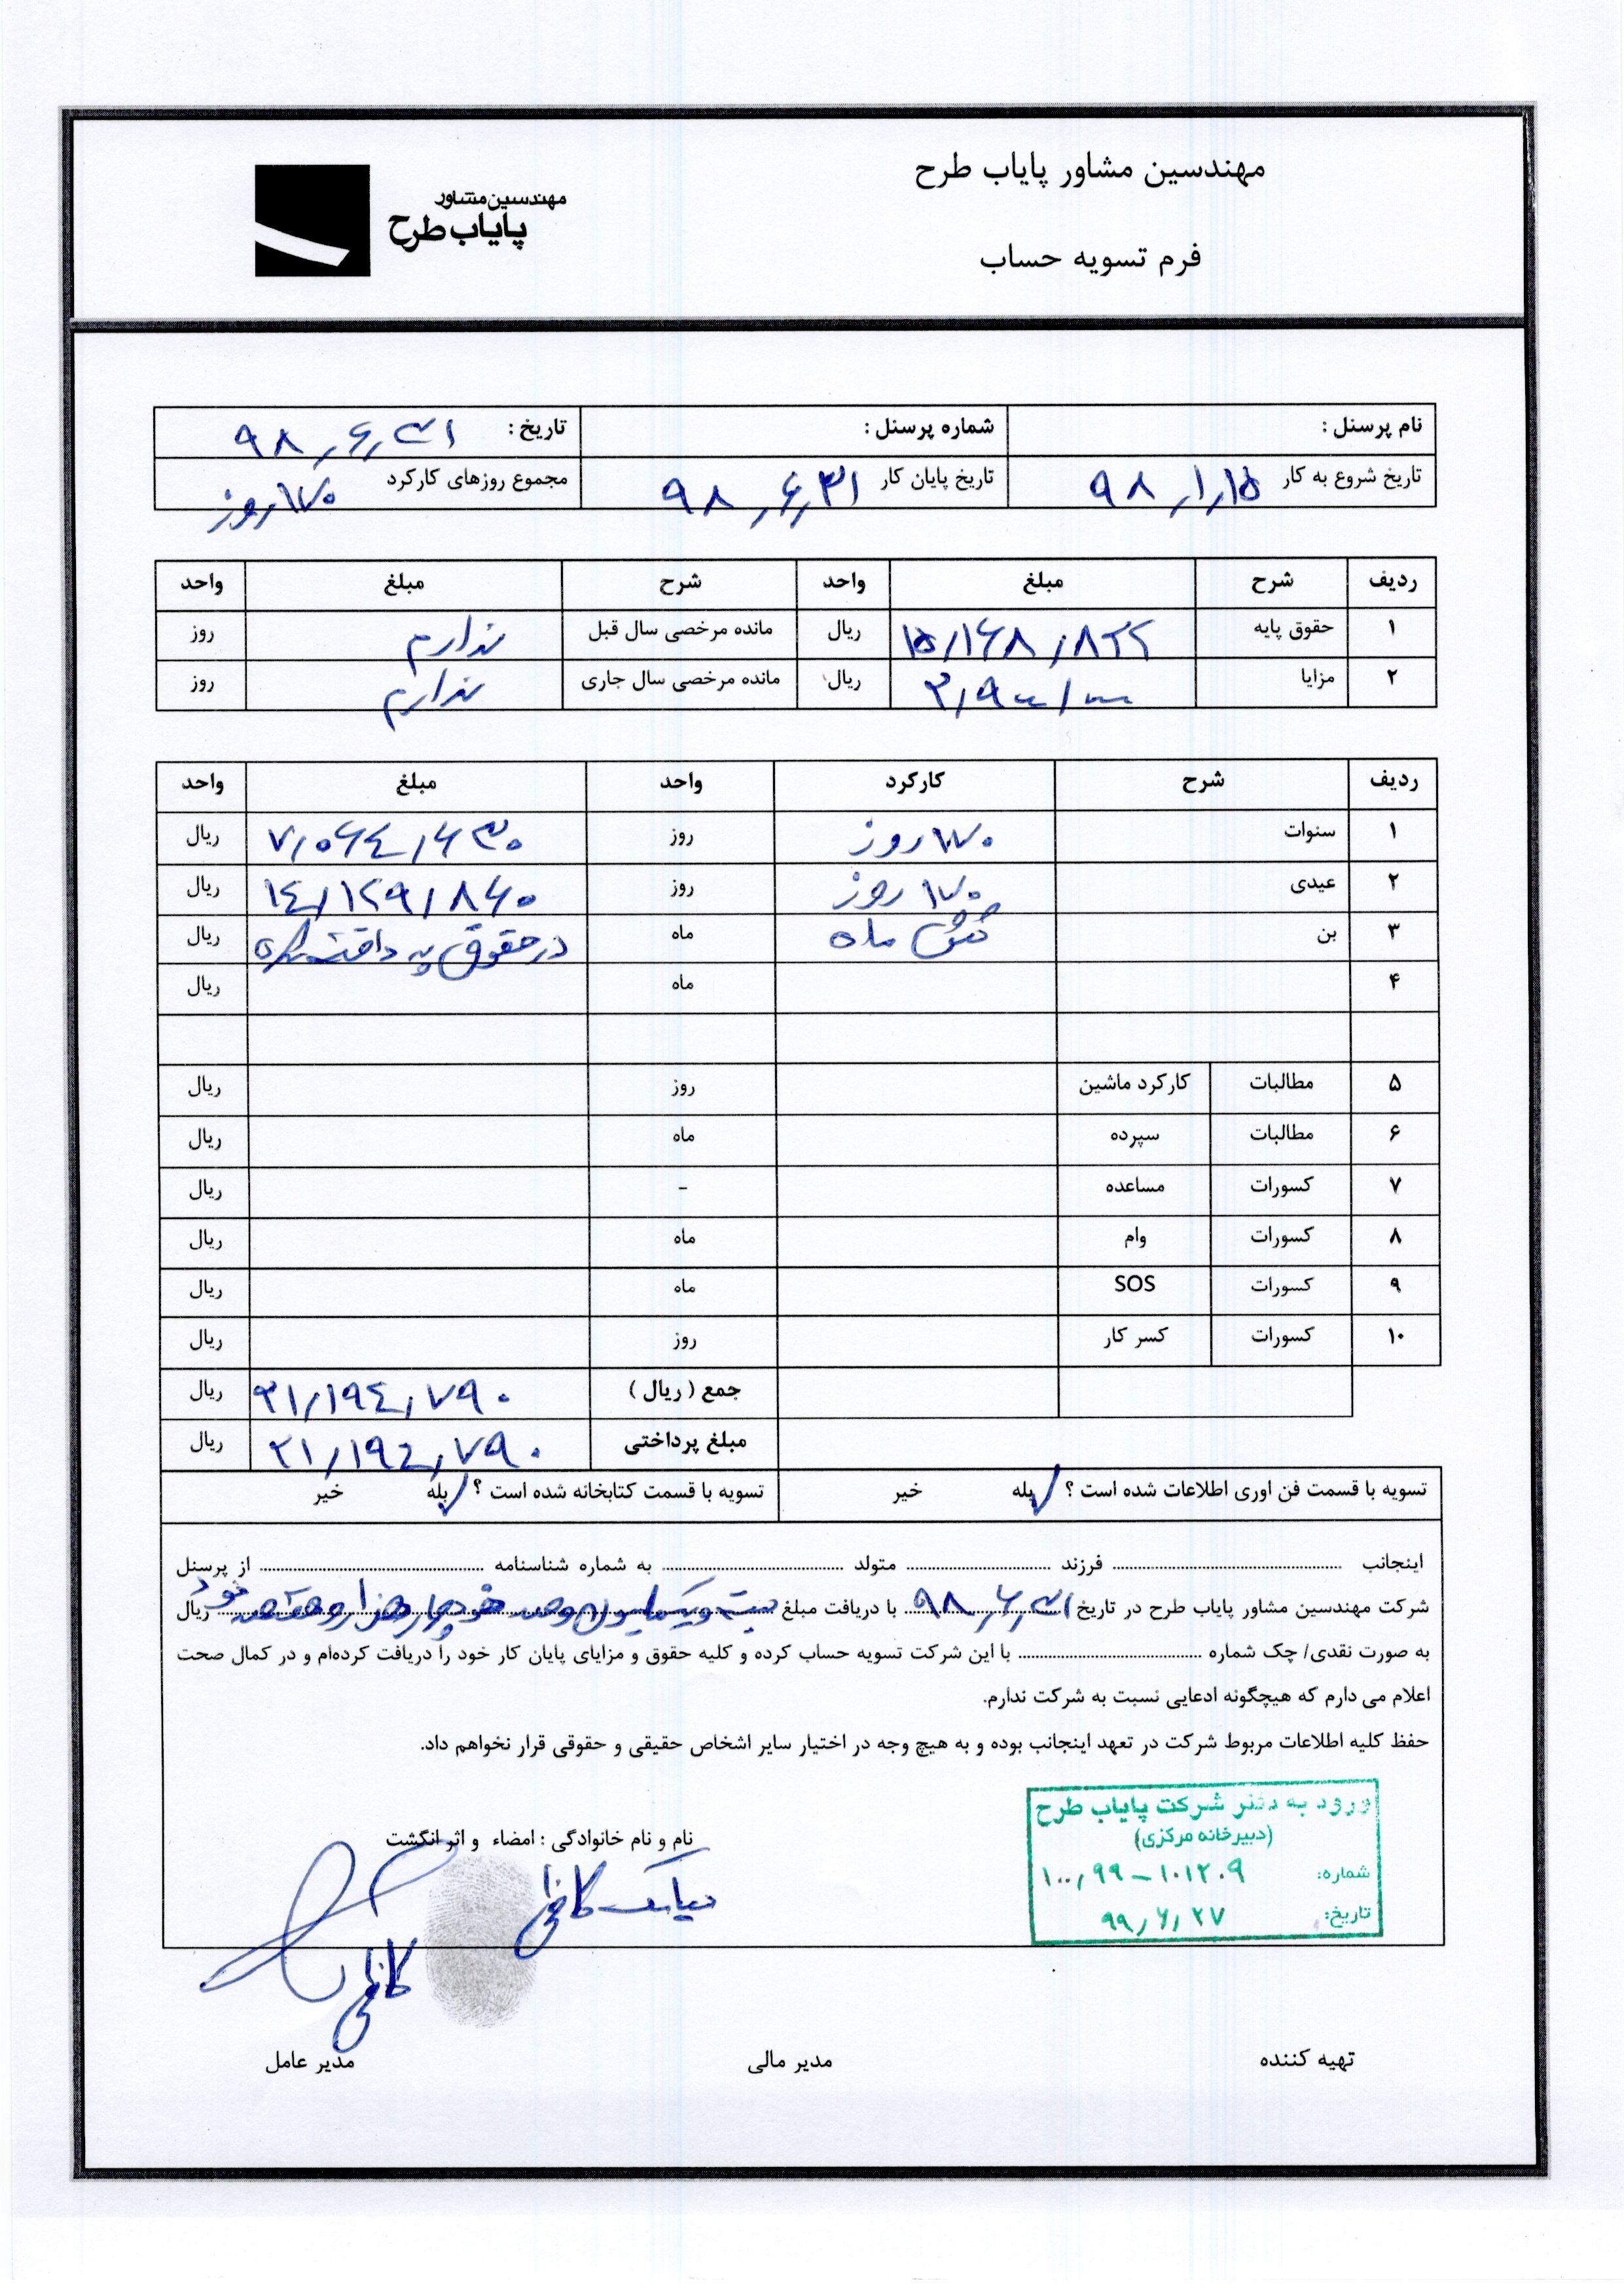 مهندسین مشاور پایاب طرح
مهندسین مشاور
پایاب طرح
فرم تسویه حساب
نام پرسنل : شماره پرسنل : تاریخ : ۹۸٫۶٫۳۱
تاریخ شروع به کار ۹۸٫۱٫۱۵ تاریخ پایان کار ۹۸٫۶٫۳۱ مجموع روزهای کارکرد ۱۷۰ روز
ردیف شرح مبلغ واحد شرح مبلغ واحد
۱ حقوق پایه ۱۵/۱۶۸/۸۲۲ ریال مانده مرخصی سال قبل ندارم روز
۲ مزایا ریال مانده مرخصی سال جاری ندارم روز
ردیف شرح کارکرد واحد مبلغ واحد
۱ سنوات ۱۷۰ روز روز ۷/۰۶۴/۶۳۰ ریال
۲ عیدی ۱۷۰ روز روز ۱۴/۱۲۹/۸۶۰ ریال
۳ بن شش ماه ماه در حقوق پرداخت شده ریال
۴ ماه ریال
۵ مطالبات کارکرد ماشین روز ریال
۶ مطالبات سپرده ماه ریال
۷ کسورات مساعده - ریال
۸ کسورات وام ماه ریال
۹ کسورات SOS ماه ریال
۱۰ کسورات کسر کار روز ریال
جمع ( ریال ) ۲۱/۱۹۴/۷۹۰ ریال
مبلغ پرداختی ۲۱/۱۹۴/۷۹۰ ریال
تسویه با قسمت فن اوری اطلاعات شده است ؟ بله خیر تسویه با قسمت کتابخانه شده است ؟ بله خیر
اینجانب ........ فرزند ........ متولد ........ به شماره شناسنامه ........ از پرسنل
شرکت مهندسین مشاور پایاب طرح در تاریخ ۹۸٫۶٫۳۱ با دریافت مبلغ بیست و یک میلیون و صد و نود و چهار هزار و هفتصد و نود ریال
به صورت نقدی/ چک شماره ........ با این شرکت تسویه حساب کرده و کلیه حقوق و مزایای پایان کار خود را دریافت کرده‌ام و در کمال صحت
اعلام می دارم که هیچگونه ادعایی نسبت به شرکت ندارم.
حفظ کلیه اطلاعات مربوط شرکت در تعهد اینجانب بوده و به هیچ وجه در اختیار سایر اشخاص حقیقی و حقوقی قرار نخواهم داد.
ورود به دفتر شرکت پایاب طرح
(دبیرخانه مرکزی)
شماره: ۱۰۰٫۹۹-۱۰۱۲۰۹
تاریخ: ۹۹٫۶٫۲۷
نام و نام خانوادگی : امضاء و اثر انگشت
سیامک کاظمی
کاظمی
تهیه کننده مدیر مالی مدیر عامل